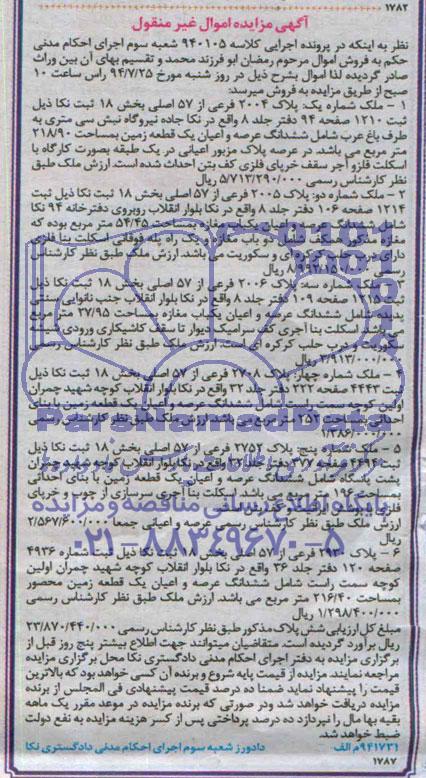 ۱۷۸۲
آگهی مزایده اموال غیر منقول
نظر به اینکه در پرونده اجرایی کلاسه ۹۴۰۱۰۵ شعبه سوم اجرای احکام مدنی
حکم به فروش اموال مرحوم رمضان ابو فرزند محمد و تقسیم بهای آن بین وراث
صادر گردیده لذا اموال بشرح ذیل در روز شنبه مورخ ۹۴/۷/۲۵ راس ساعت ۱۰
صبح از طریق مزایده به فروش میرسد:
۱ – ملک شماره یک: پلاک ۲۰۰۴ فرعی از ۵۷ اصلی بخش ۱۸ ثبت نکا ذیل
ثبت ۱۲۱۰ صفحه ۹۴ دفتر جلد ۸ واقع در نکا جاده نیروگاه نبش سی متری به
طرف باغ عرب شامل ششدانگ عرصه و اعیان یک قطعه زمین بمساحت ۲۱۸/۹۰
متر مربع می باشد. در عرصه پلاک مزبور اعیانی در یک طبقه بصورت کارگاه با
اسکلت فلزو آجر سقف خرپای فلزی کف بتن احداث شده است. ارزش ملک طبق
نظر کارشناس رسمی ۵/۷۱۳/۲۹۰/۰۰۰ ریال
۲ – ملک شماره دو: پلاک ۲۰۰۵ فرعی از ۵۷ اصلی بخش ۱۸ ثبت نکا ذیل ثبت
۱۲۱۴ صفحه ۱۰۶ دفتر جلد ۸ واقع در نکا بلوار انقلاب روبروی دفترخانه ۹۴ نکا
شامل ششدانگ عرصه و اعیان یکباب مغازه بمساحت ۵۴/۴۵ متر مربع بوده که
مغازه مذکور همکف شامل دو باب مغازه و یک راه پله فوقانی اسکلت بنا فلزی
دارای درب حلب کرکره ای و سکوریت می باشد. ارزش ملک طبق نظر کارشناس
رسمی ریال
۳ – ملک شماره سه: پلاک ۲۰۰۶ فرعی از ۵۷ اصلی بخش ۱۸ ثبت نکا ذیل
ثبت ۱۲۱۵ صفحه ۱۰۹ دفتر جلد ۸ واقع در نکا بلوار انقلاب جنب نانوایی سنتی
پدیده شامل ششدانگ عرصه و اعیان یکباب مغازه بمساحت ۲۷/۹۵ متر مربع
می باشد. اسکلت بنا آجری کف سرامیک دیوار تا سقف کاشیکاری ورودی شیشه
سکوریت و درب حلب کرکره ای است. ارزش ملک طبق نظر کارشناس رسمی
ریال
۴ – ملک شماره چهار: پلاک ۲۷۰۸ فرعی از ۵۷ اصلی بخش ۱۸ ثبت نکا ذیل
ثبت ۴۴۴۳ صفحه ۲۲۲ دفتر جلد ۳۲ واقع در نکا بلوار انقلاب کوچه شهید چمران
اولین کوچه سمت راست شامل ششدانگ عرصه و اعیان یک قطعه زمین با بنای
احداثی بمساحت متر مربع می باشد. ارزش ملک طبق نظر کارشناس رسمی
ریال
۵ – ملک شماره پنج: پلاک ۲۷۵۲ فرعی از ۵۷ اصلی بخش ۱۸ ثبت نکا ذیل
ثبت صفحه دفتر جلد ۳۲ واقع در نکا بلوار انقلاب کوچه شهید چمران
پشت پاسگاه شامل ششدانگ عرصه و اعیان یک قطعه زمین با بنای احداثی
بمساحت متر مربع می باشد. اسکلت بنا آجری سربازسازی از چوب و خرپای
ارزش ملک طبق نظر کارشناس رسمی عرصه و اعیانی جمعا ۲/۵۶۷/۶۰۰/۰۰۰
ریال
پایگاه اطلاع رسانی مناقصه و مزایده
۰۲۱-۸۸۳۴۹۶۷۰-۵
۶ – پلاک فرعی از ۵۷ اصلی بخش ۱۸ ثبت نکا ذیل ثبت شماره ۴۹۳۶
صفحه ۱۲۰ دفتر جلد ۳۶ واقع در نکا بلوار انقلاب کوچه شهید چمران اولین
کوچه سمت راست شامل ششدانگ عرصه و اعیان یک قطعه زمین محصور
بمساحت ۲۱۶/۴۰ متر مربع می باشد. ارزش ملک طبق نظر کارشناس رسمی
۱/۲۹۸/۴۰۰/۰۰۰ ریال
مبلغ کل ارزیابی شش پلاک مذکور طبق نظر کارشناس رسمی ۲۳/۸۷۰/۴۴۰/۰۰۰
ریال برآورد گردیده است. متقاضیان میتوانند جهت اطلاع بیشتر پنج روز قبل از
برگزاری مزایده به دفتر اجرای احکام مدنی دادگستری نکا محل برگزاری مزایده
مراجعه نمایند. مزایده از قیمت پایه شروع و برنده آن کسی خواهد بود که بالاترین
قیمت را پیشنهاد نماید ضمنا ده درصد قیمت پیشنهادی فی المجلس از برنده
مزایده دریافت خواهد شد ودر صورتی که برنده مزایده در موعد مقرر یک ماهه
بقیه بها مال را نپردازد ده درصد پرداختی پس از کسر هزینه مزایده به نفع دولت
ضبط خواهد شد.
۹۴۱۷۳۱م الف دادورز شعبه سوم اجرای احکام مدنی دادگستری نکا
۱۷۸۷